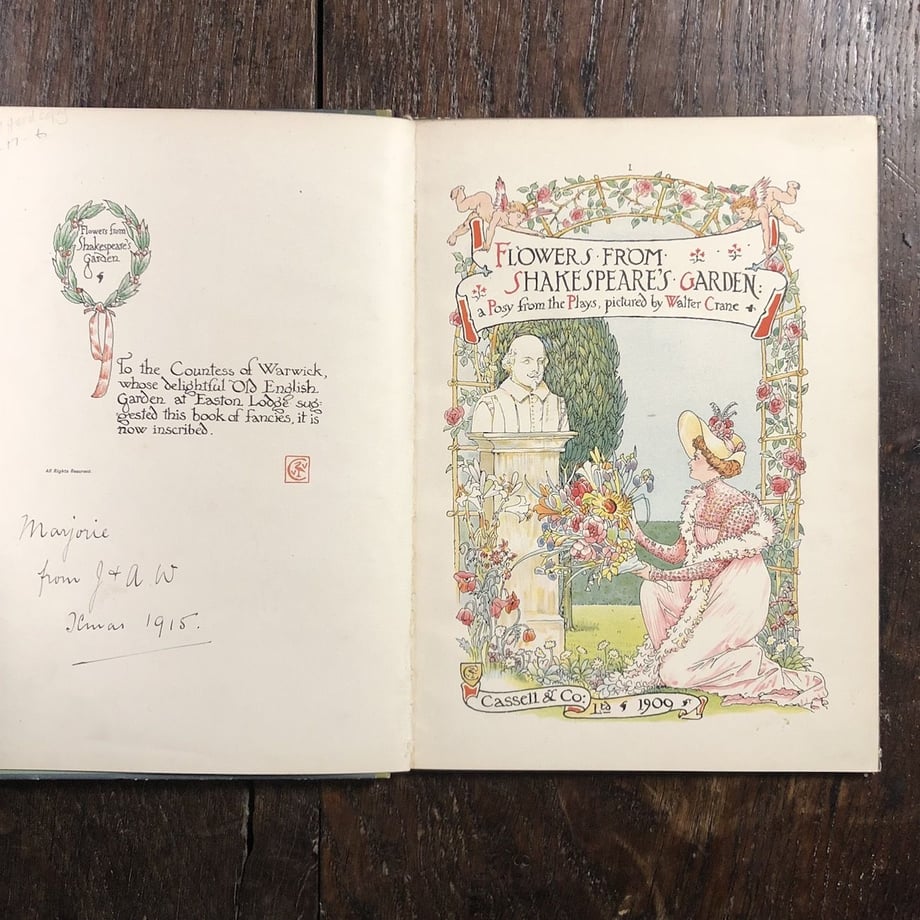 Flowers from
Shakespeare's
Garden
To the Countess of Warwick,
whose delightful Old English
Garden at Easton Lodge sug:
gested this book of fancies, it is
now inscribed.
All Rights Reserved.
Marjorie
from J & A. W
Xmas 1915.
1
FLOWERS · FROM ·
SHAKESPEARE'S · GARDEN:
a Posy from the Plays, pictured by Walter Crane
Cassell & Co: Ltd 1909